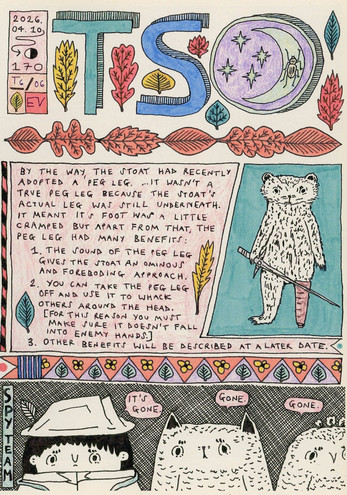 2026.
04.10.
170
T6/06
EV
TSO
BY THE WAY, THE STOAT HAD RECENTLY
ADOPTED A PEG LEG. ...IT WASN'T A
TRUE PEG LEG BECAUSE THE STOAT'S
ACTUAL LEG WAS STILL UNDERNEATH.
IT MEANT IT'S FOOT WAS A LITTLE
CRAMPED BUT APART FROM THAT, THE
PEG LEG HAD MANY BENEFITS:
1. THE SOUND OF THE PEG LEG
GIVES THE STOAT AN OMINOUS
AND FOREBODING APPROACH.
2. YOU CAN TAKE THE PEG LEG
OFF AND USE IT TO WHACK
OTHERS AROUND THE HEAD.
[FOR THIS REASON YOU MUST
MAKE SURE IT DOESN'T FALL
INTO ENEMY HANDS.]
3. OTHER BENEFITS WILL BE DESCRIBED AT A LATER DATE.
SPY TEAM
IT'S
GONE.
GONE.
GONE.